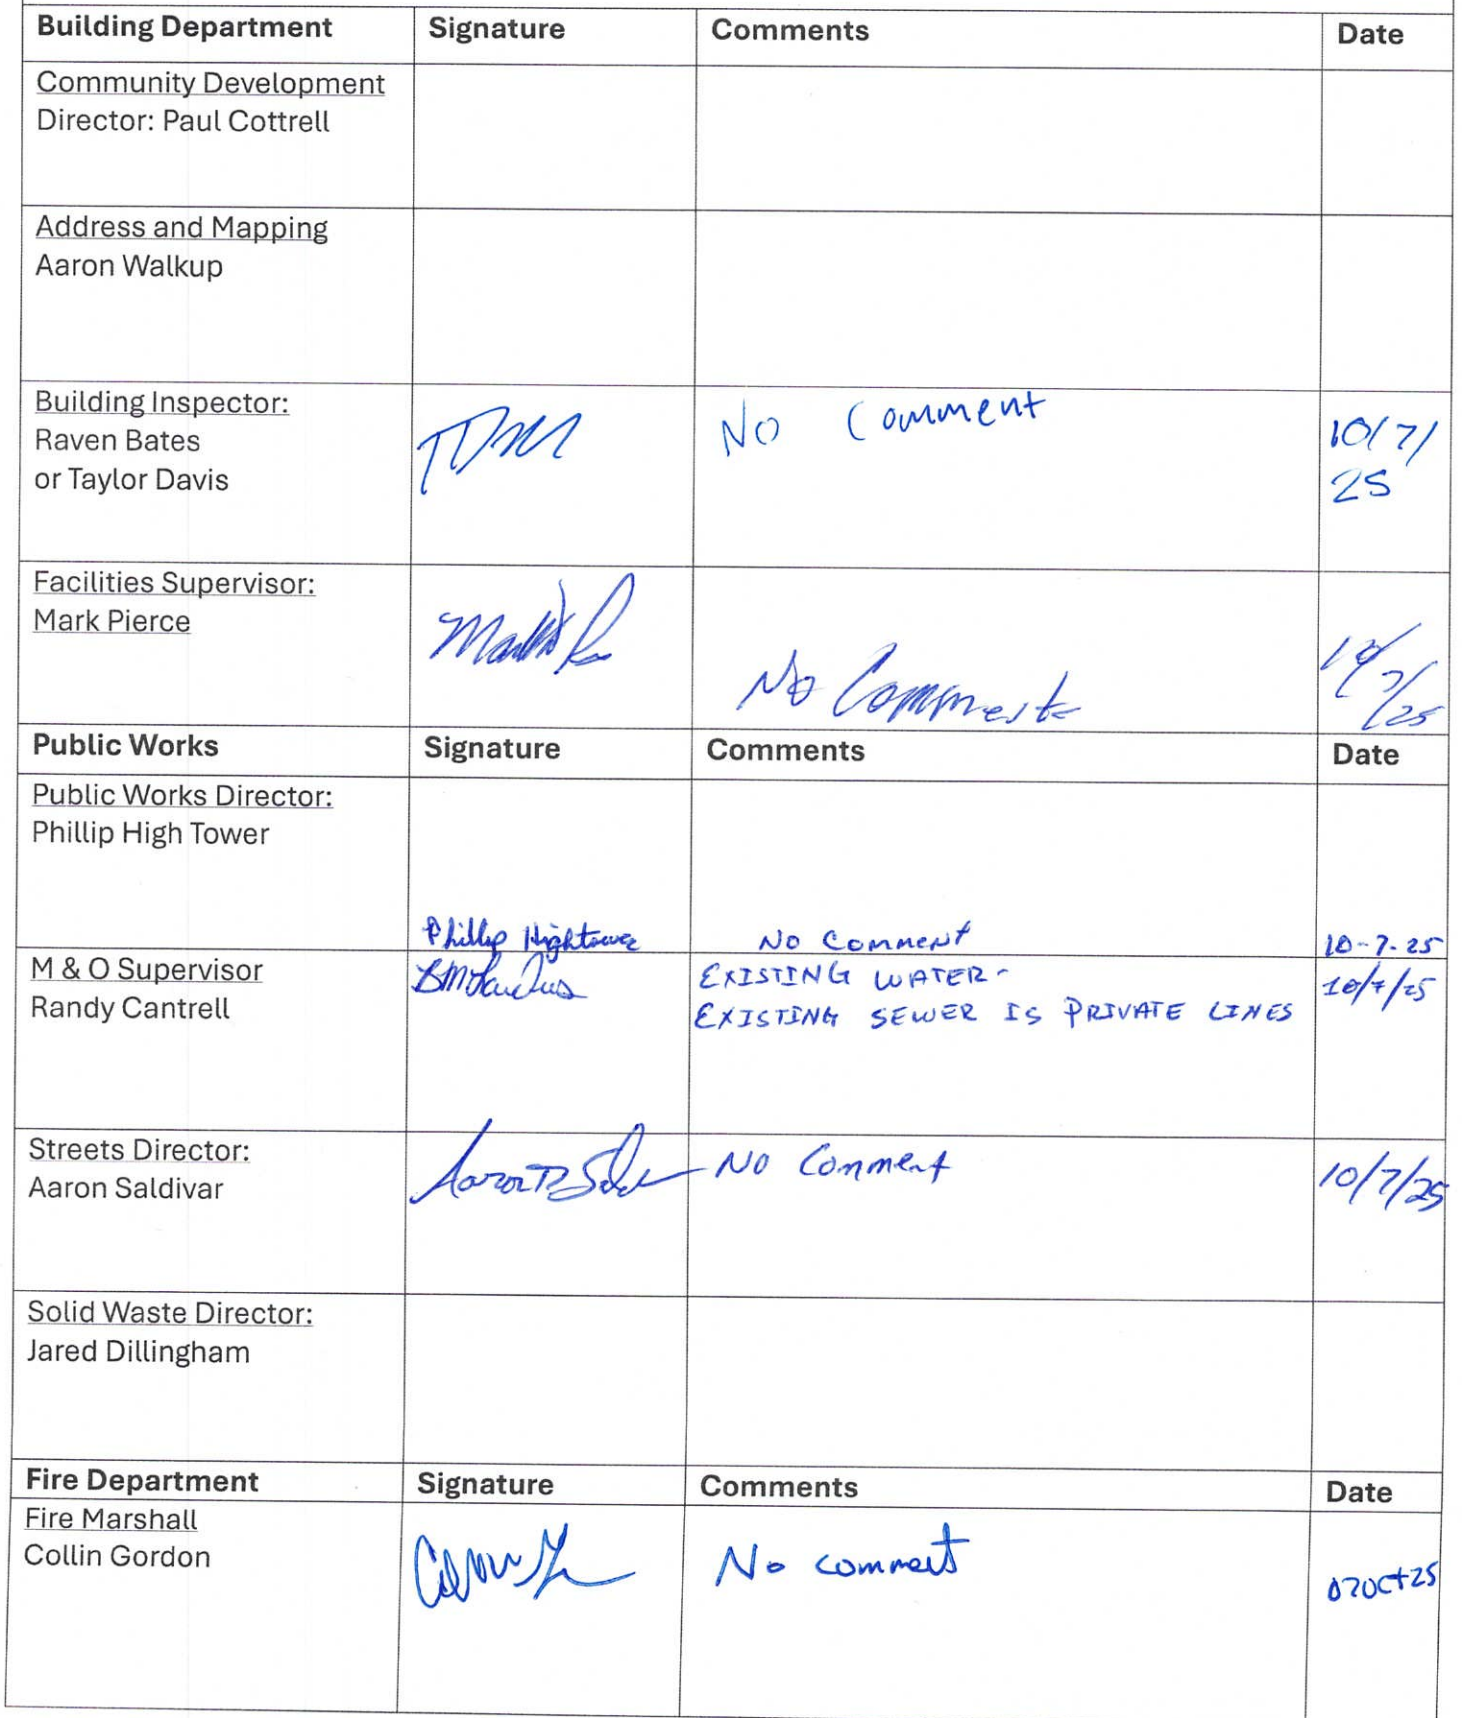 Building Department Signature Comments Date
Community Development
Director: Paul Cottrell
Address and Mapping
Aaron Walkup
Building Inspector:
Raven Bates
or Taylor Davis
No Comment
10/7/
25
Facilities Supervisor:
Mark Pierce
No Comments
10/7/25
Public Works Signature Comments Date
Public Works Director:
Phillip High Tower
Phillip Hightower No Comment 10-7-25
M & O Supervisor
Randy Cantrell
EXISTING WATER-
EXISTING SEWER IS PRIVATE LINES
10/7/25
Streets Director:
Aaron Saldivar
No Comment 10/7/25
Solid Waste Director:
Jared Dillingham
Fire Department Signature Comments Date
Fire Marshall
Collin Gordon
No comment 07Oct25